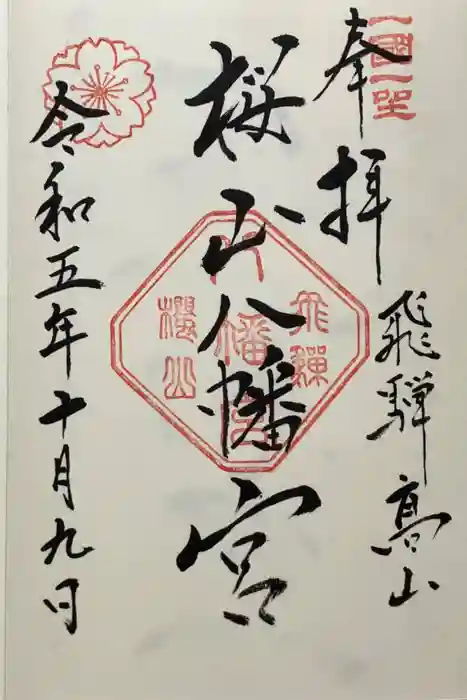 一國一社
奉拝
飛騨高山
桜山八幡宮
飛驒
八幡宮
櫻山
令和五年十月九日